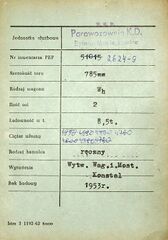 P.K.P.
Jednostka służbowa Parowozownia K.D.
Nr inwentarza PKP 51015 2624-9
Szerokość toru 785mm
Rodzaj wagonu Wh
Ilość osi 2
Ładowność w t. 8,5t.
Ciężar własny 4760
Rodzaj hamulca ręczny
Wytwórnia Wytw. Wag. i Most.
Konstal
Rok budowy 1953r.